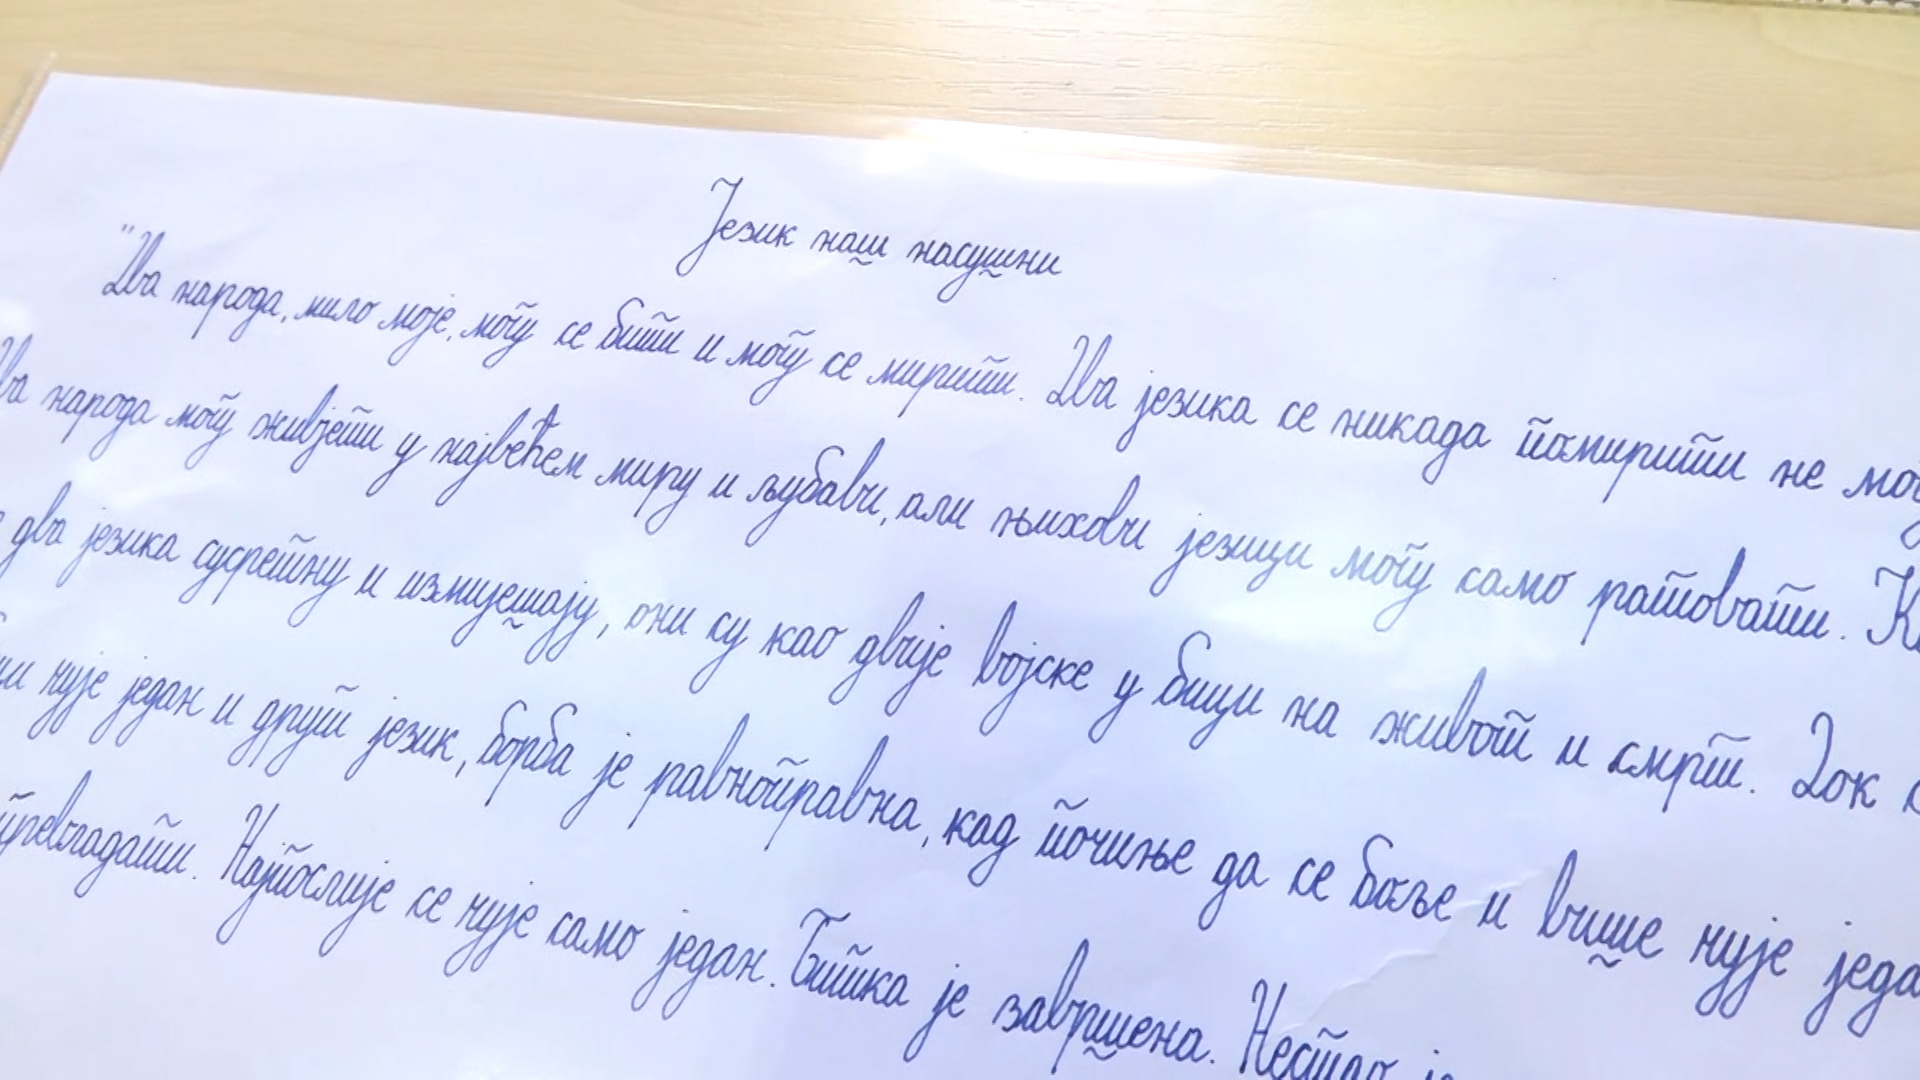 Језик наш насушни
"Два народа, мило моје, могу се бити и могу се мирити. Два језика се никада помирити не
народа могу живјети у највећем миру и љубави, али њихови језици могу само ратовати.
два језика сусретну и измијешају, они су као двије војске у бици на живот и смрт. Док
чује један и други језик, борба је равноправна, кад почиње да се боље и више чује
превладати. Најпослије се чује само један. Битка је завршена. Нестао